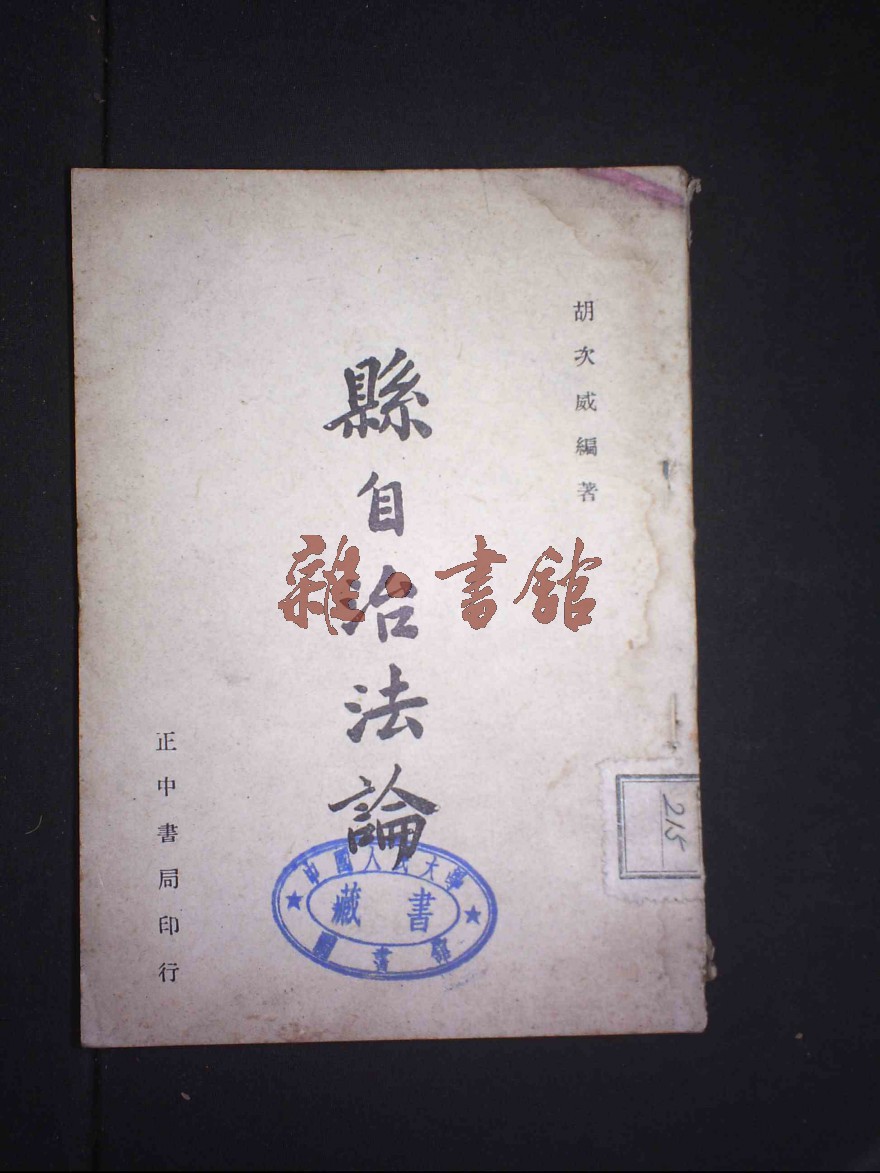 胡次威編著
縣自治法論
正中書局印行
雜·書館
中國人民大學
藏書
圖書館
215